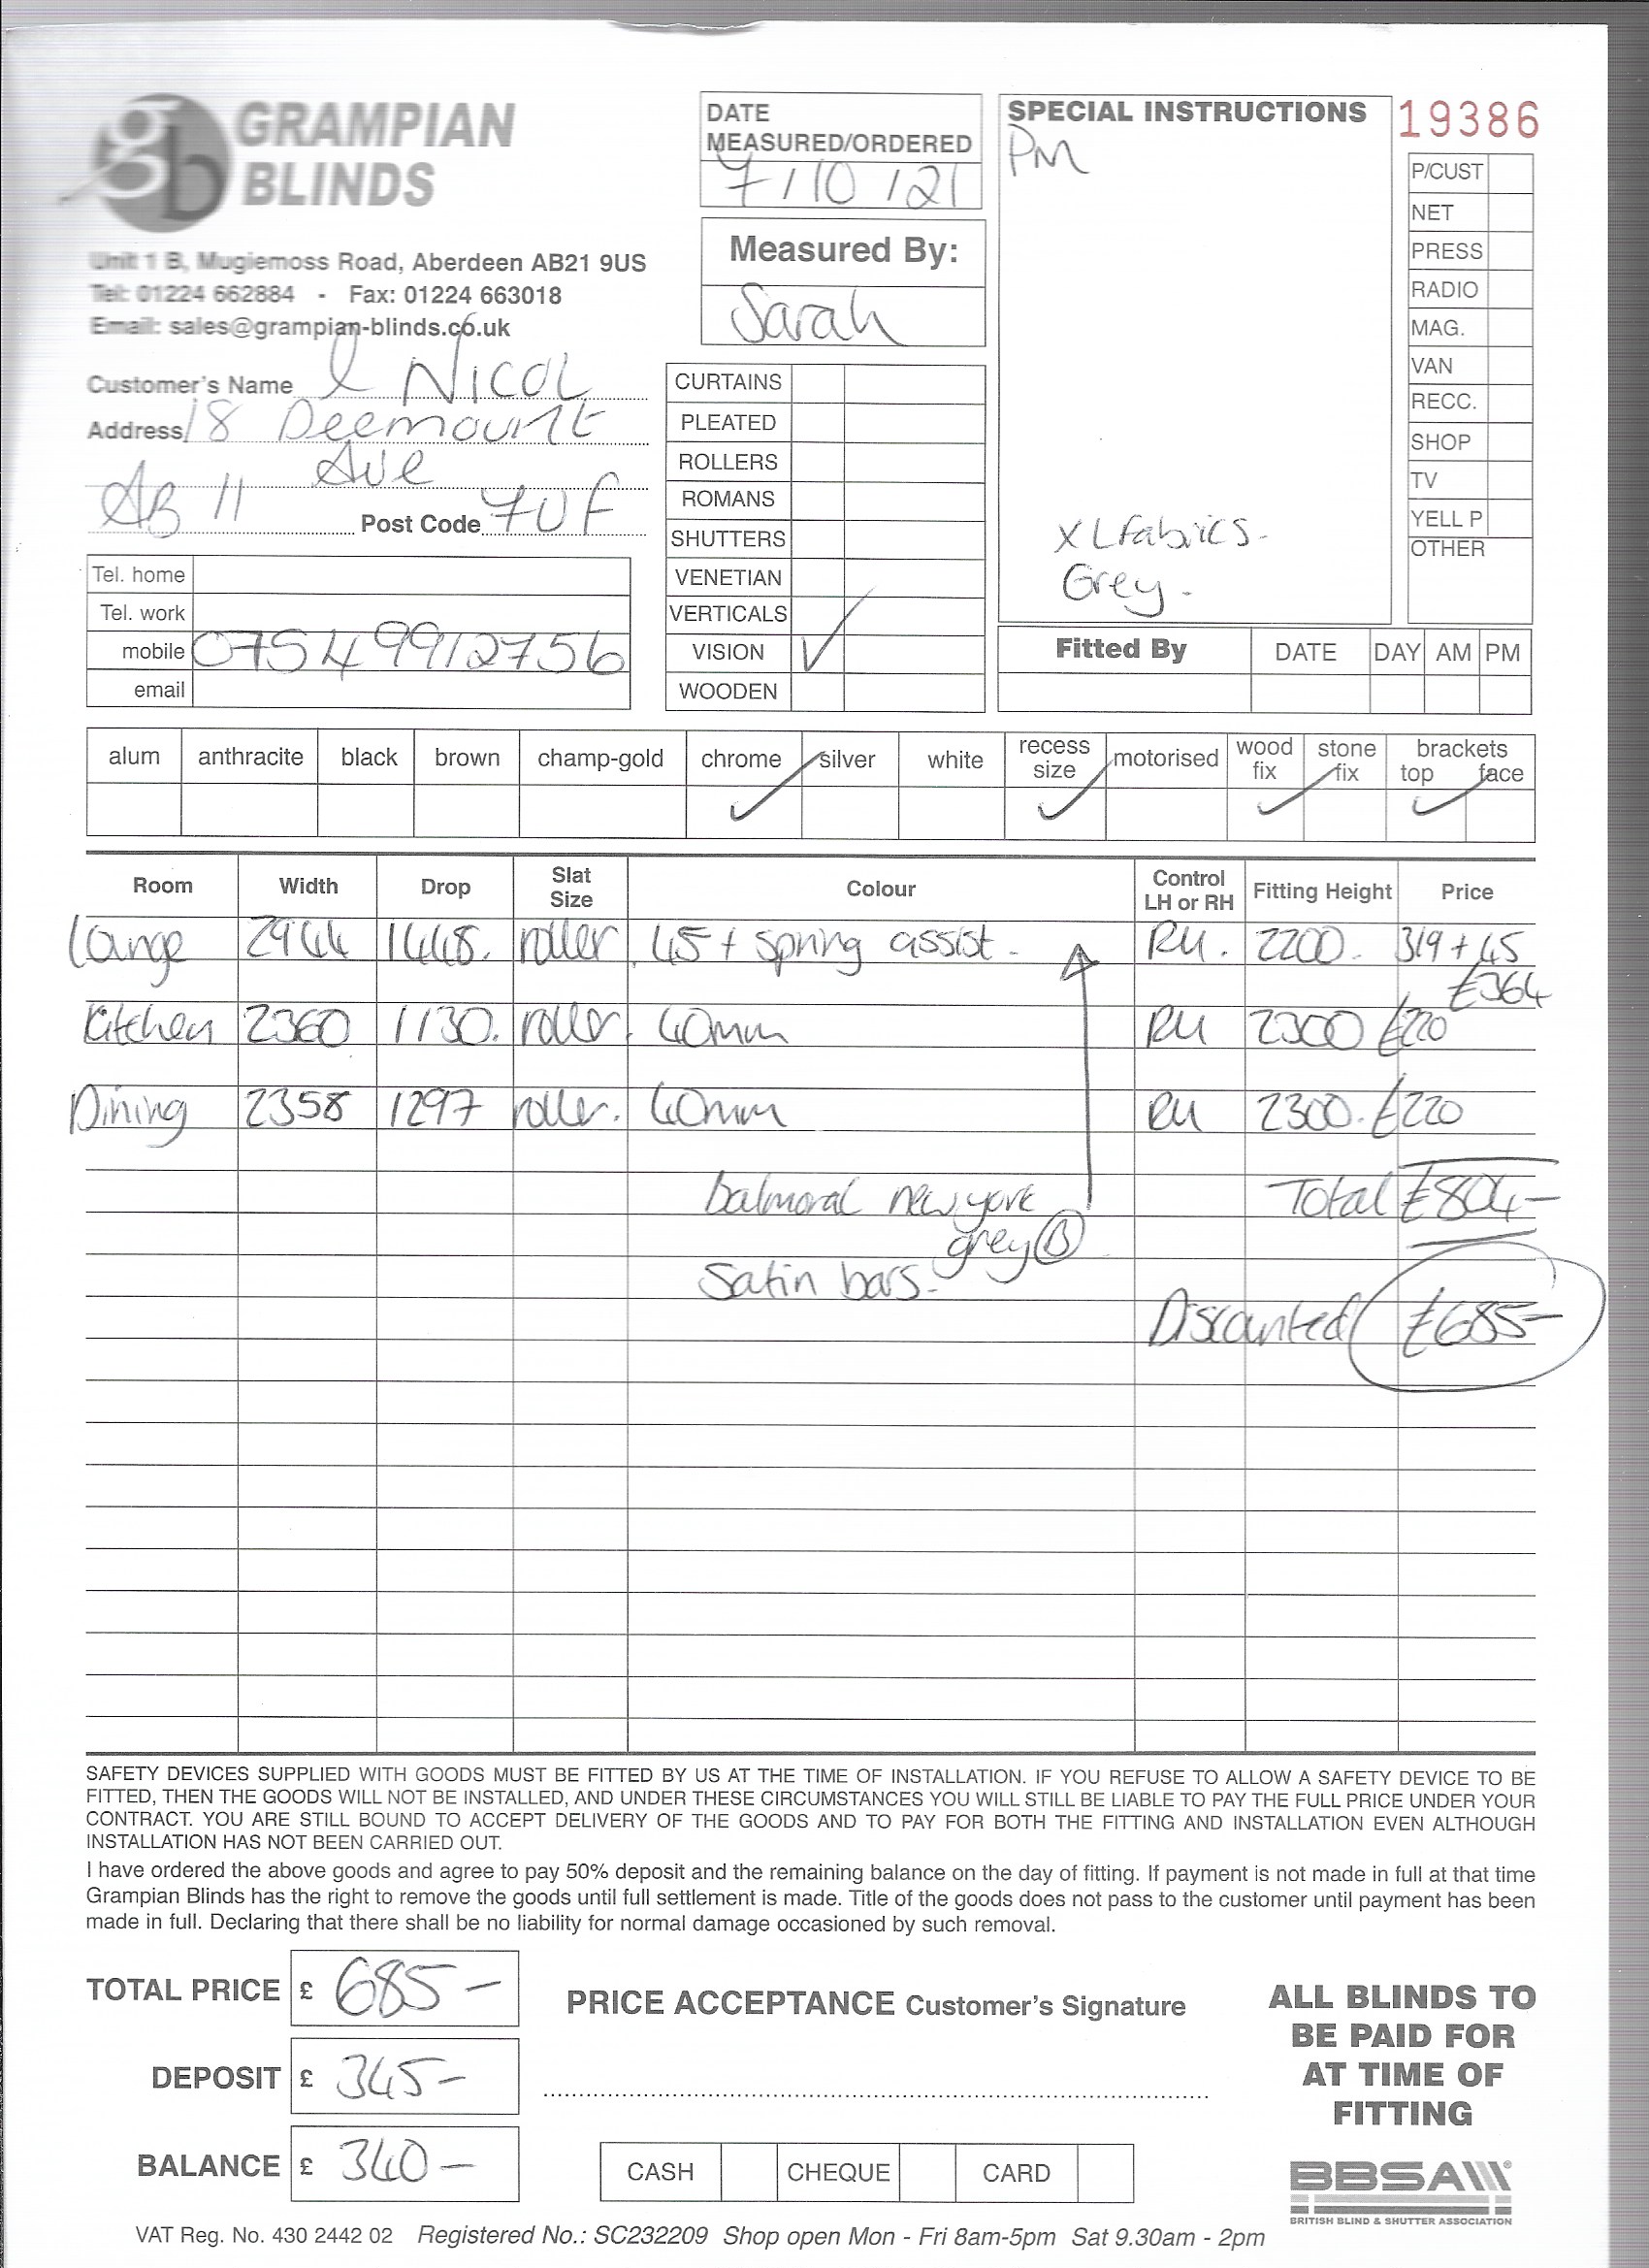 GRAMPIAN
BLINDS
Unit 1 B, Mugiemoss Road, Aberdeen AB21 9US
Tel: 01224 662884 - Fax: 01224 663018
Email: sales@grampian-blinds.co.uk
Customer's Name L Nicol
Address 18 Deemount
Ave
AB 11 Post Code 7UF
Tel. home
Tel. work
mobile 07549912756
email
DATE
MEASURED/ORDERED
7/10/21
Measured By:
Sarah
CURTAINS
PLEATED
ROLLERS
ROMANS
SHUTTERS
VENETIAN
VERTICALS
VISION ✓
WOODEN
SPECIAL INSTRUCTIONS
PM
XL Fabrics-
Grey-
19386
P/CUST
NET
PRESS
RADIO
MAG.
VAN
RECC.
SHOP
TV
YELL P
OTHER
Fitted By DATE DAY AM PM
alum anthracite black brown champ-gold chrome silver white recess size motorised wood fix stone fix brackets top face
✓ ✓ ✓ ✓
Room Width Drop Slat Size Colour Control LH or RH Fitting Height Price
Lounge 2944 1448. roller 45 + spring assist - RH. 2200. 319 + 45
£364
Kitchen 2360 1130. roller. 40mm RH 2300 £220
Dining 2358 1297 roller. 40mm RH 2300. £220
balmoral new york Total £804-
grey B
Satin bars-
Discounted £685-
SAFETY DEVICES SUPPLIED WITH GOODS MUST BE FITTED BY US AT THE TIME OF INSTALLATION. IF YOU REFUSE TO ALLOW A SAFETY DEVICE TO BE
FITTED, THEN THE GOODS WILL NOT BE INSTALLED, AND UNDER THESE CIRCUMSTANCES YOU WILL STILL BE LIABLE TO PAY THE FULL PRICE UNDER YOUR
CONTRACT. YOU ARE STILL BOUND TO ACCEPT DELIVERY OF THE GOODS AND TO PAY FOR BOTH THE FITTING AND INSTALLATION EVEN ALTHOUGH
INSTALLATION HAS NOT BEEN CARRIED OUT.
I have ordered the above goods and agree to pay 50% deposit and the remaining balance on the day of fitting. If payment is not made in full at that time
Grampian Blinds has the right to remove the goods until full settlement is made. Title of the goods does not pass to the customer until payment has been
made in full. Declaring that there shall be no liability for normal damage occasioned by such removal.
TOTAL PRICE £ 685-
DEPOSIT £ 345-
BALANCE £ 340-
PRICE ACCEPTANCE Customer's Signature
CASH CHEQUE CARD
ALL BLINDS TO
BE PAID FOR
AT TIME OF
FITTING
BBSA
BRITISH BLIND & SHUTTER ASSOCIATION
VAT Reg. No. 430 2442 02 Registered No.: SC232209 Shop open Mon - Fri 8am-5pm Sat 9.30am - 2pm